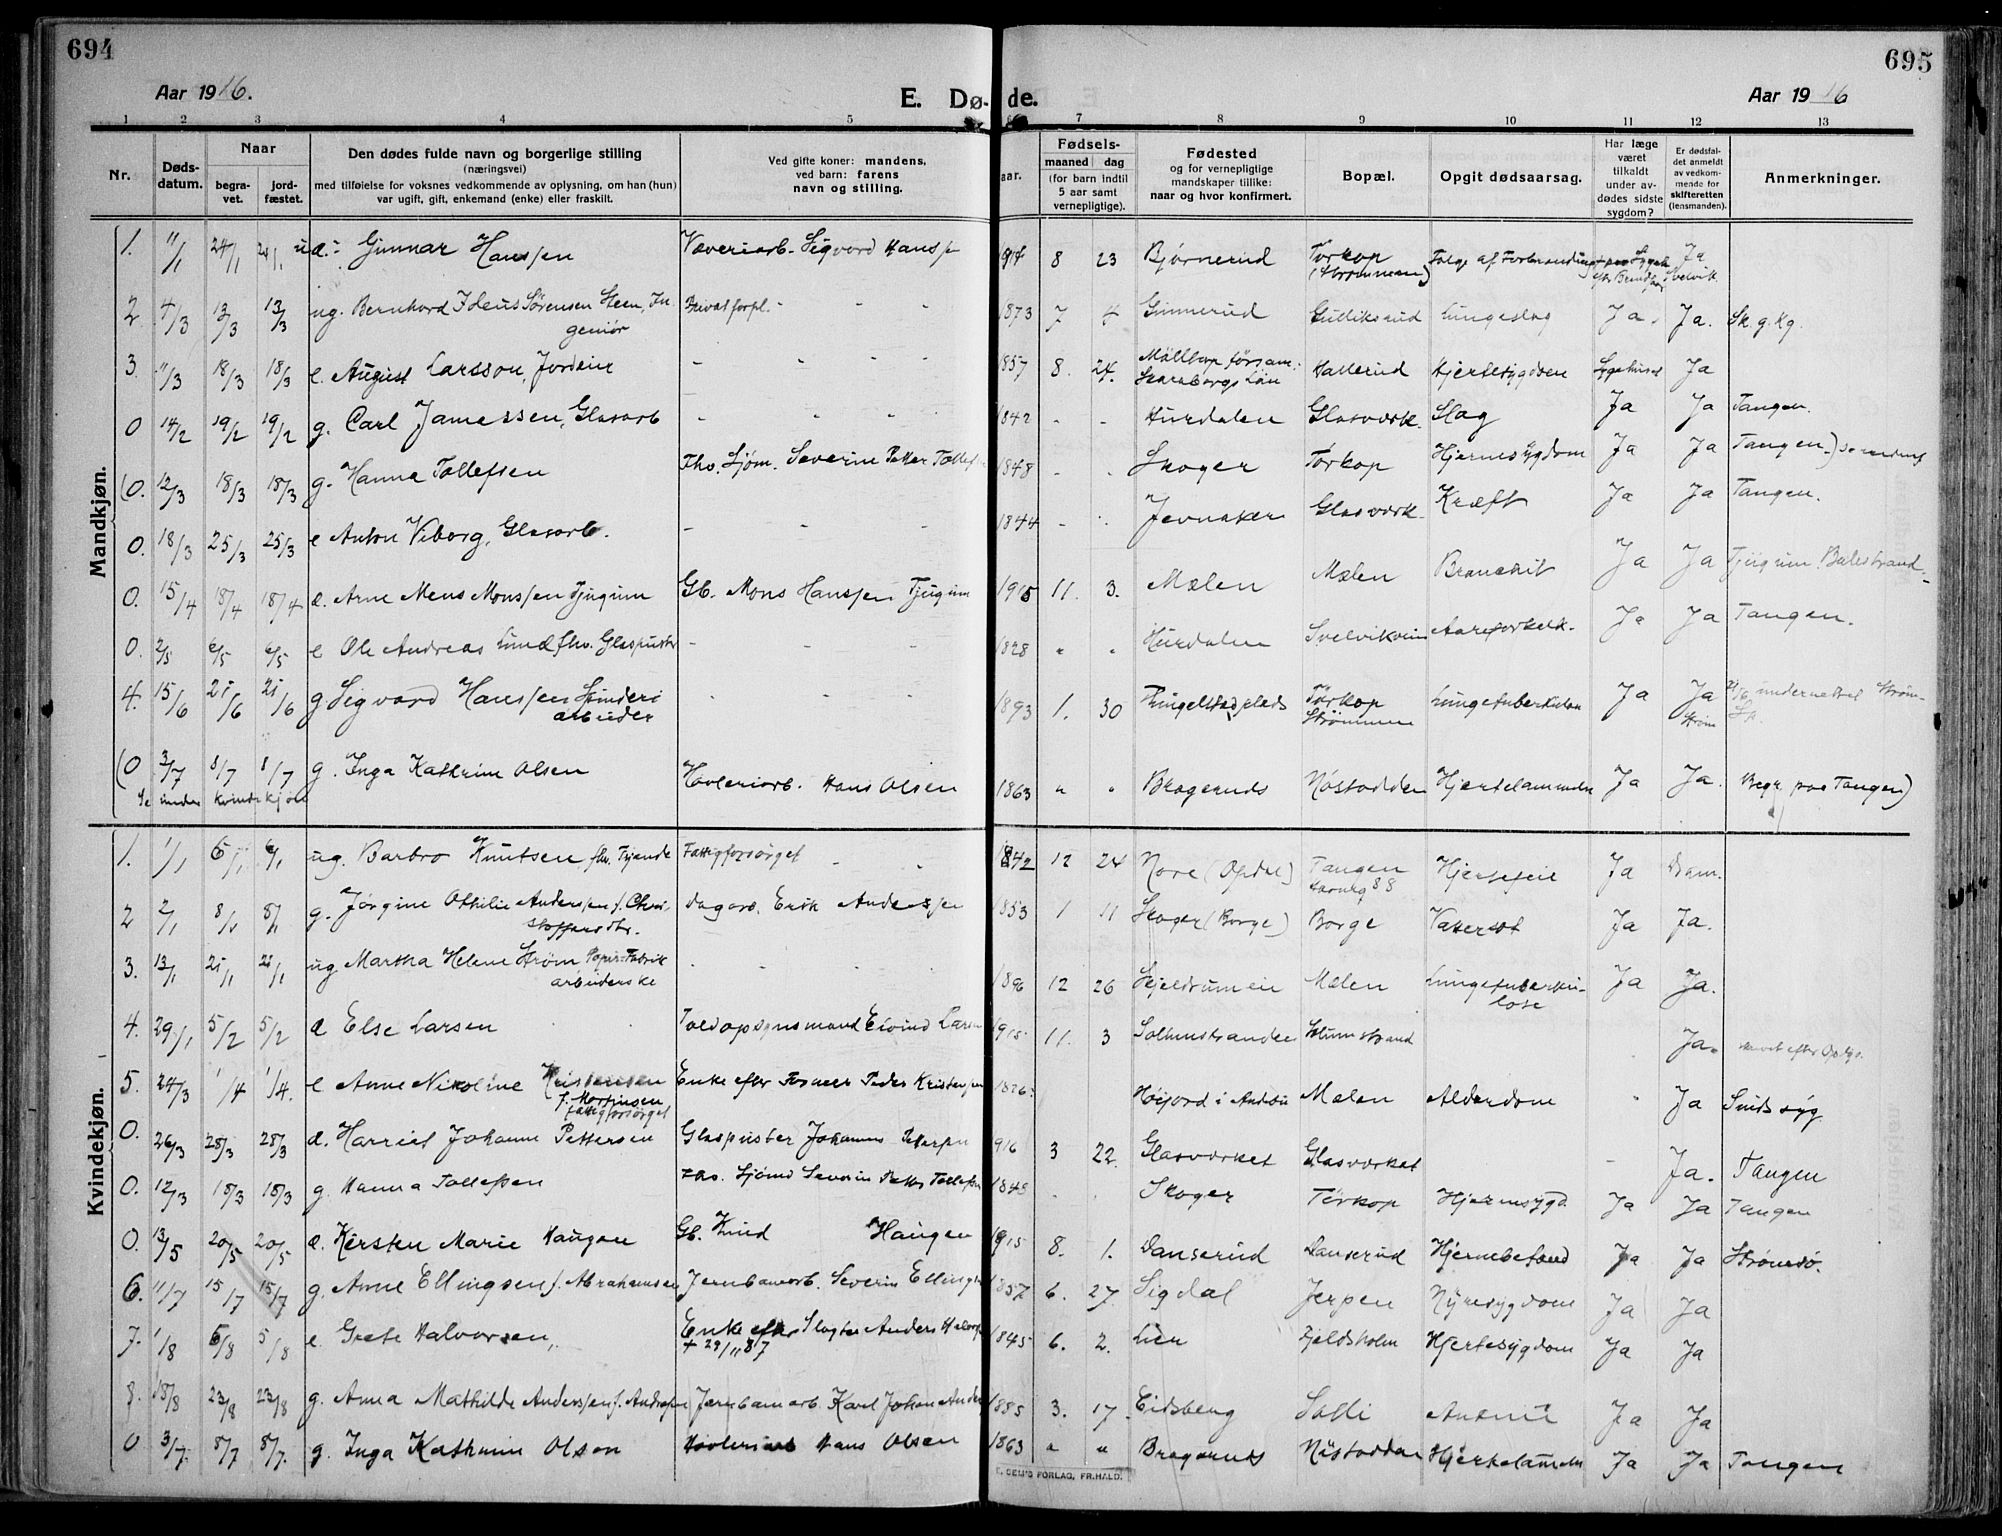 694
695
Aar 1916.
E. Døde.
Aar 1916
1 2 3 4 5 6 7 8 9 10 11 12 13
Nr.
Døds-
datum.
Naar
begra-
vet.
jord-
fæstet.
Den dødes fulde navn og borgerlige stilling
(næringsvei)
med tilføielse for voksnes vedkommende av oplysning, om han (hun)
var ugift, gift, enkemand (enke) eller fraskilt.
Ved gifte koner: mandens,
ved barn: farens
navn og stilling.
aar.
Fødsels-
maaned dag
(for barn indtil
5 aar samt
vernepligtige).
Fødested
og for vernepligtige
mandskaper tillike:
naar og hvor konfirmert.
Bopæl.
Opgit dødsaarsag.
Har læge
været
tilkaldt
under av-
dødes sidste
sygdom?
Er dødsfal-
det anmeldt
av vedkom-
mende for
skifteretten
(lensmanden).
Anmerkninger.
Mandkjøn.
1. 11/1 24/1 24/1 Gunnar Hanssen Væveriarb. Sigvard Hanss 1914 8 23 Bjørnerud Torkop (Strømmen) Følge af Forbrænding Ja Svelvik
2 4/3 13/3 13/3 ug. Bernhard Sørensen Steen, In-
geniør Privat forpl. 1873 7 4 Ginnerud Gulliksrud Lungeslag Ja. Ja. Sk. g. Kg.
3. 11/3 18/3 18/3 e. August Larsson, Jordeier - 1857 8. 24. Hallerud Hjertesygdom Sygehuset Ja
0 14/2 19/2 19/2 g. Carl Jamessen, Glasarb - 1842 - - Hurdalen Glasværk. Slag Ja Ja Tangen.
(0. 12/3 18/3 18/3 g. Hanna Tollefsen Fhv. Sjøm. Severin Petter Tollefs 1848 - Skoger Torkop Hjernesygdom Ja Ja Tangen.)
0. 18/3 25/3 25/3 e Anton Viborg, Glasarb. - 1844 - Jevnaker Glasværk Kræft Ja Ja Tangen.
0. 15/4 18/4 18/4 d. Arne Mons Monssen Tjugum Gb. Mons Hanssen Tjugum 1915 11. 3. Mælen Mælen Bronchit Ja Ja Tjugum. Balestrand-
0. 2/5 6/5 6/5 e Ole Andreas Lund fhv. Glaspuster - 1828 " " Hurdalen Svelvikvein Aareforkalk. Ja Ja Tangen.
4. 15/6 21/6 21/6 g Sigvard Hanssen Spinderi
arbeider 1893 1. 30 Torkop
Strømmen Lungetuberkulose Ja Ja
Strøm
(0 3/7 8/7 8/7 g. Inga Kathrine Olsen Høvleriarb. Hans Olsen 1863 " " Bragernes Nøstodden Hjertelammelse Ja Ja. Begr. paa Tangen)
Se under kvindekjøn
Kvindekjøn.
1. 1/1 6/1 6/1 ug. Barbro Knutsen fhv. Tjende Fattigforsørget 1842 12 24 Nore (Opdal) Tangen
Hjertefeil Ja Dram.
2 2/1 8/1 8/1 g. Jørgine Othilie Anderssen f. Chri-
stoffersdtr. dagarb. Erik Anderssen 1853 1 11 Skoger (Borge) Borge Vattersot Ja Ja.
3. 13/1 21/1 21/1 ug Martha Helene Strøm Papir-Fabrik
arbeiderske 1896 12 26 Mælen Lungetuberku-
lose Ja Ja.
4. 29/1 5/2 5/2 d Else Larsen Toldopsynsmand Eivind Larsen 1915 11. 3 Solumstranden Solumstrand Ja.
5. 24/3 1/4 1/4. e Anne Nikoline Kristensen
f. Mortensen
fattigforsørget Enke efter Fosneer Peder Kristensen 1826 Mælen Alderdom Ja Sindssyg
0. 26/3 28/3 28/3 d. Harriet Johanne Pettersen Glaspuster Johannes Pettersen 1916 3 22. Glasværket Glasværket - Ja. Tangen
0. 12/3 18/3 18/3 g. Hanna Tollefsen Fhv. Sjømd Severin Petter Tollefsen 1848 Skoger Torkop Hjernesygd. Ja Ja Tangen
0. 13/5 20/5 20/5 d. Kirsten Marie Haugen Gb. Knud Haugen 1915 8. 1. Danserud Danserud Hjernebetænd Ja Ja Strømsø.
6. 11/7 15/7 15/7 g. Anne Ellingsen f. Abrahamsen Jernbanearb. Severin Ellingsen 1857 6. 27. Sigdal Jerpen Nyresygdom Ja Ja
7. 1/8 5/8 5/8 e. Grete Halvorsen, Enke efter Slagter Anders Halvors
+ 29/11 87 1845 6. 2. Lien Fjeldsholm Hjertesygdom Ja Ja
8. 18/8 23/8 23/8 g. Anna Mathilde Anderssen f. Andersen Jernbanearb Karl Johan Anders 1885 3. 17. Eidsberg Solli Anæmi Ja Ja
0 3/7. 8/7 8/7. g. Inga Kathrine Olsen Høvleriarb Hans Olsen 1863 " " Bragernes Nøstodden Hjertelammelse Ja Ja Tangen
E. SEM'S FORLAG, FR.HALD.